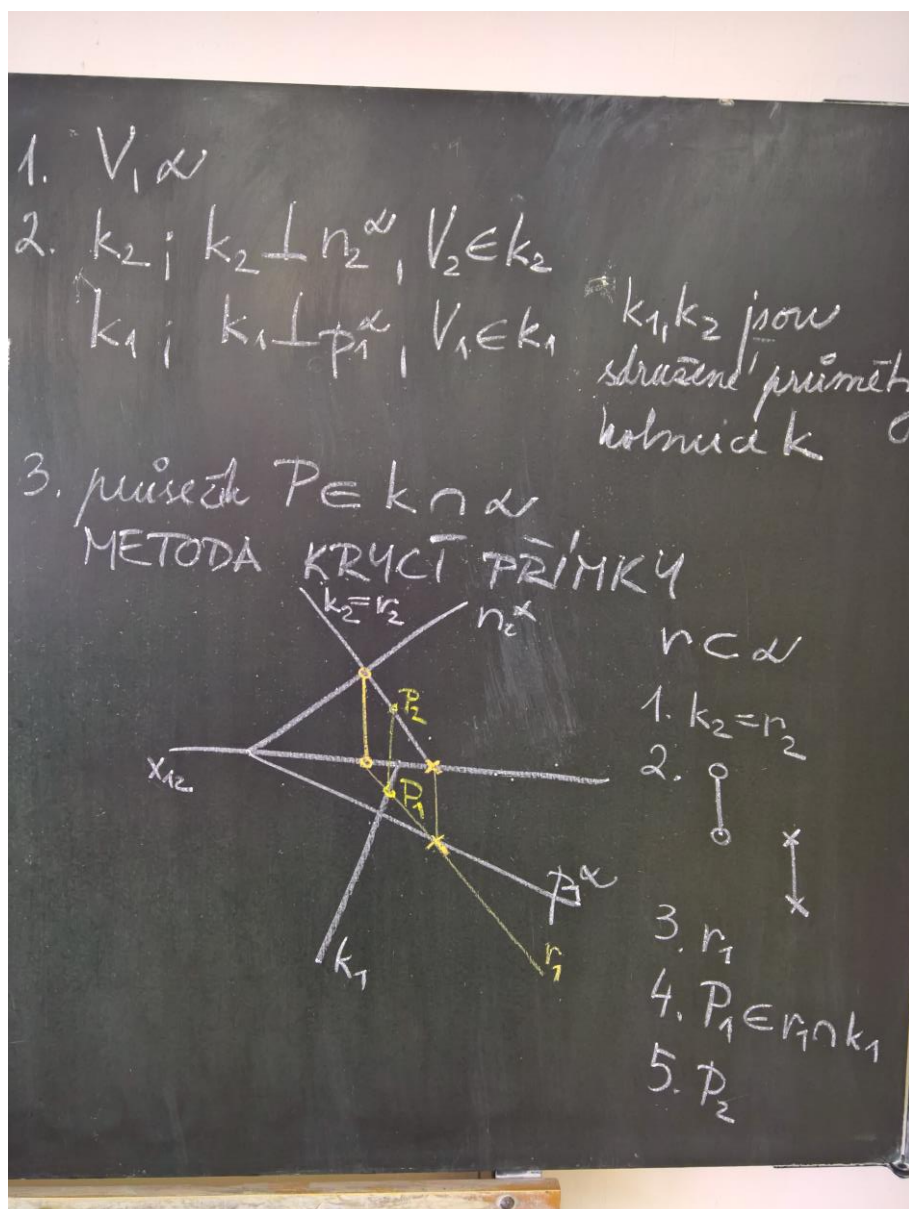 1. V, α
2. k₂; k₂ ⊥ n₂^α, V₂ ∈ k₂
k₁; k₁ ⊥ p₁^α, V₁ ∈ k₁
k₁, k₂ jsou
sdružené průměty
kolmice k
3. průsečík P ∈ k ∩ α
METODA KRYCÍ PŘÍMKY
k₂=r₂
n₂^α
P₂
x₁₂
P₁
p₁^α
r₁
k₁
r ⊂ α
1. k₂=r₂
2.
3. r₁
4. P₁ ∈ r₁ ∩ k₁
5. P₂